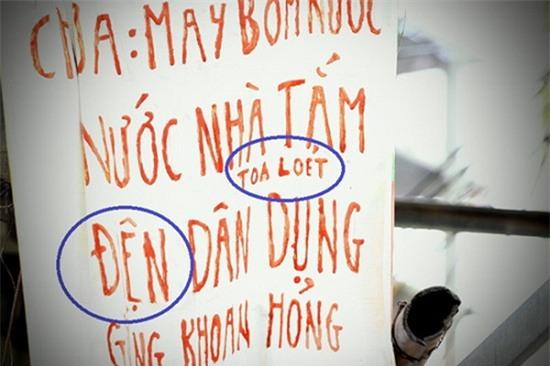 CHA: MAY BƠM NƯỚC
NƯỚC NHÀ TẮM
TOA LOÉT
ĐỆN DÂN DỤNG
GIỆNG KHOAN HỎNG